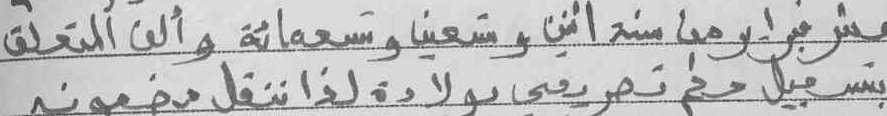 عشر فبراير من سنة اثنين وتسعين وتسعمائة وألف المتعلق
بتسجيل رقم تصريحي بولادة لذا ننقل مضمونه